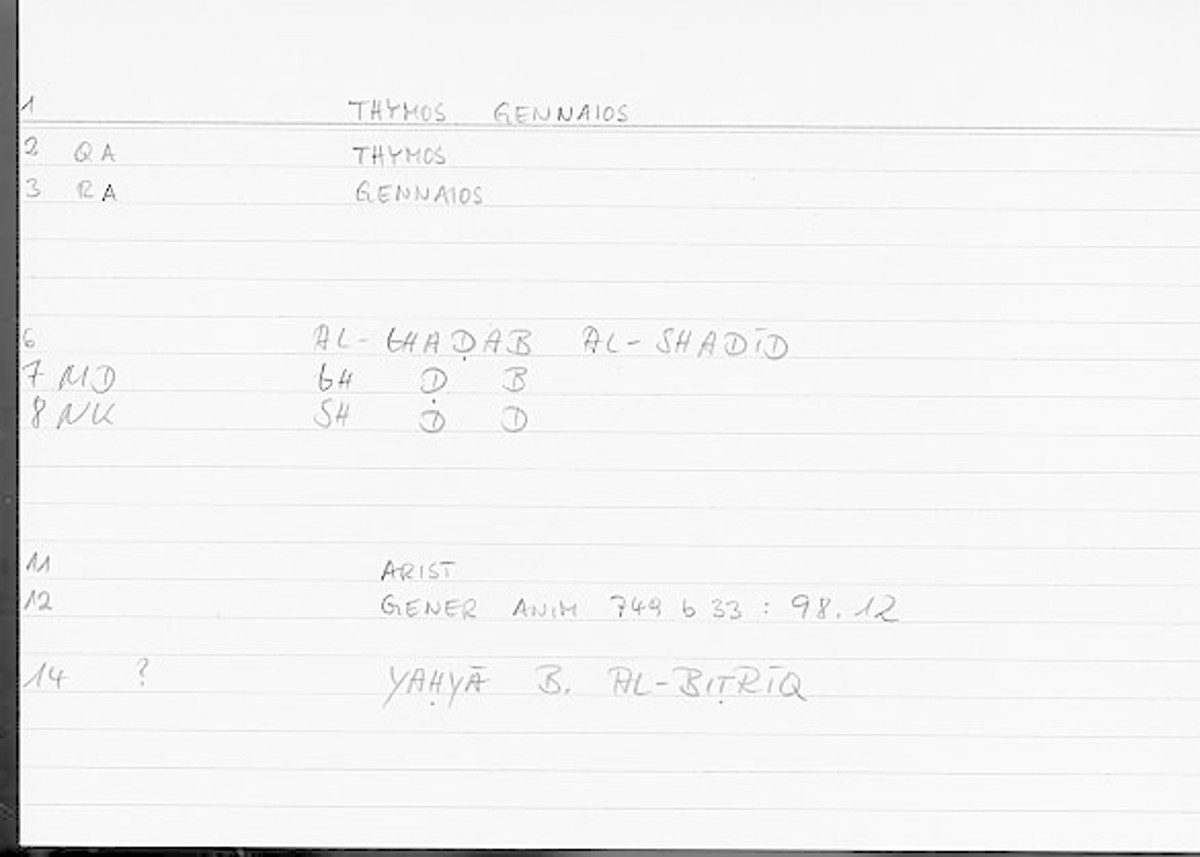 1 THYMOS GENNAIOS
2 QA THYMOS
3 RA GENNAIOS
6 AL-GHAḌAB AL-SHADĪD
7 MD GH Ḍ B
8 NK SH Ḋ D
11 ARIST
12 GENER ANIM 749 b 33 : 98.12
14 ? YAḤYĀ B. AL-BIṬRĪQ